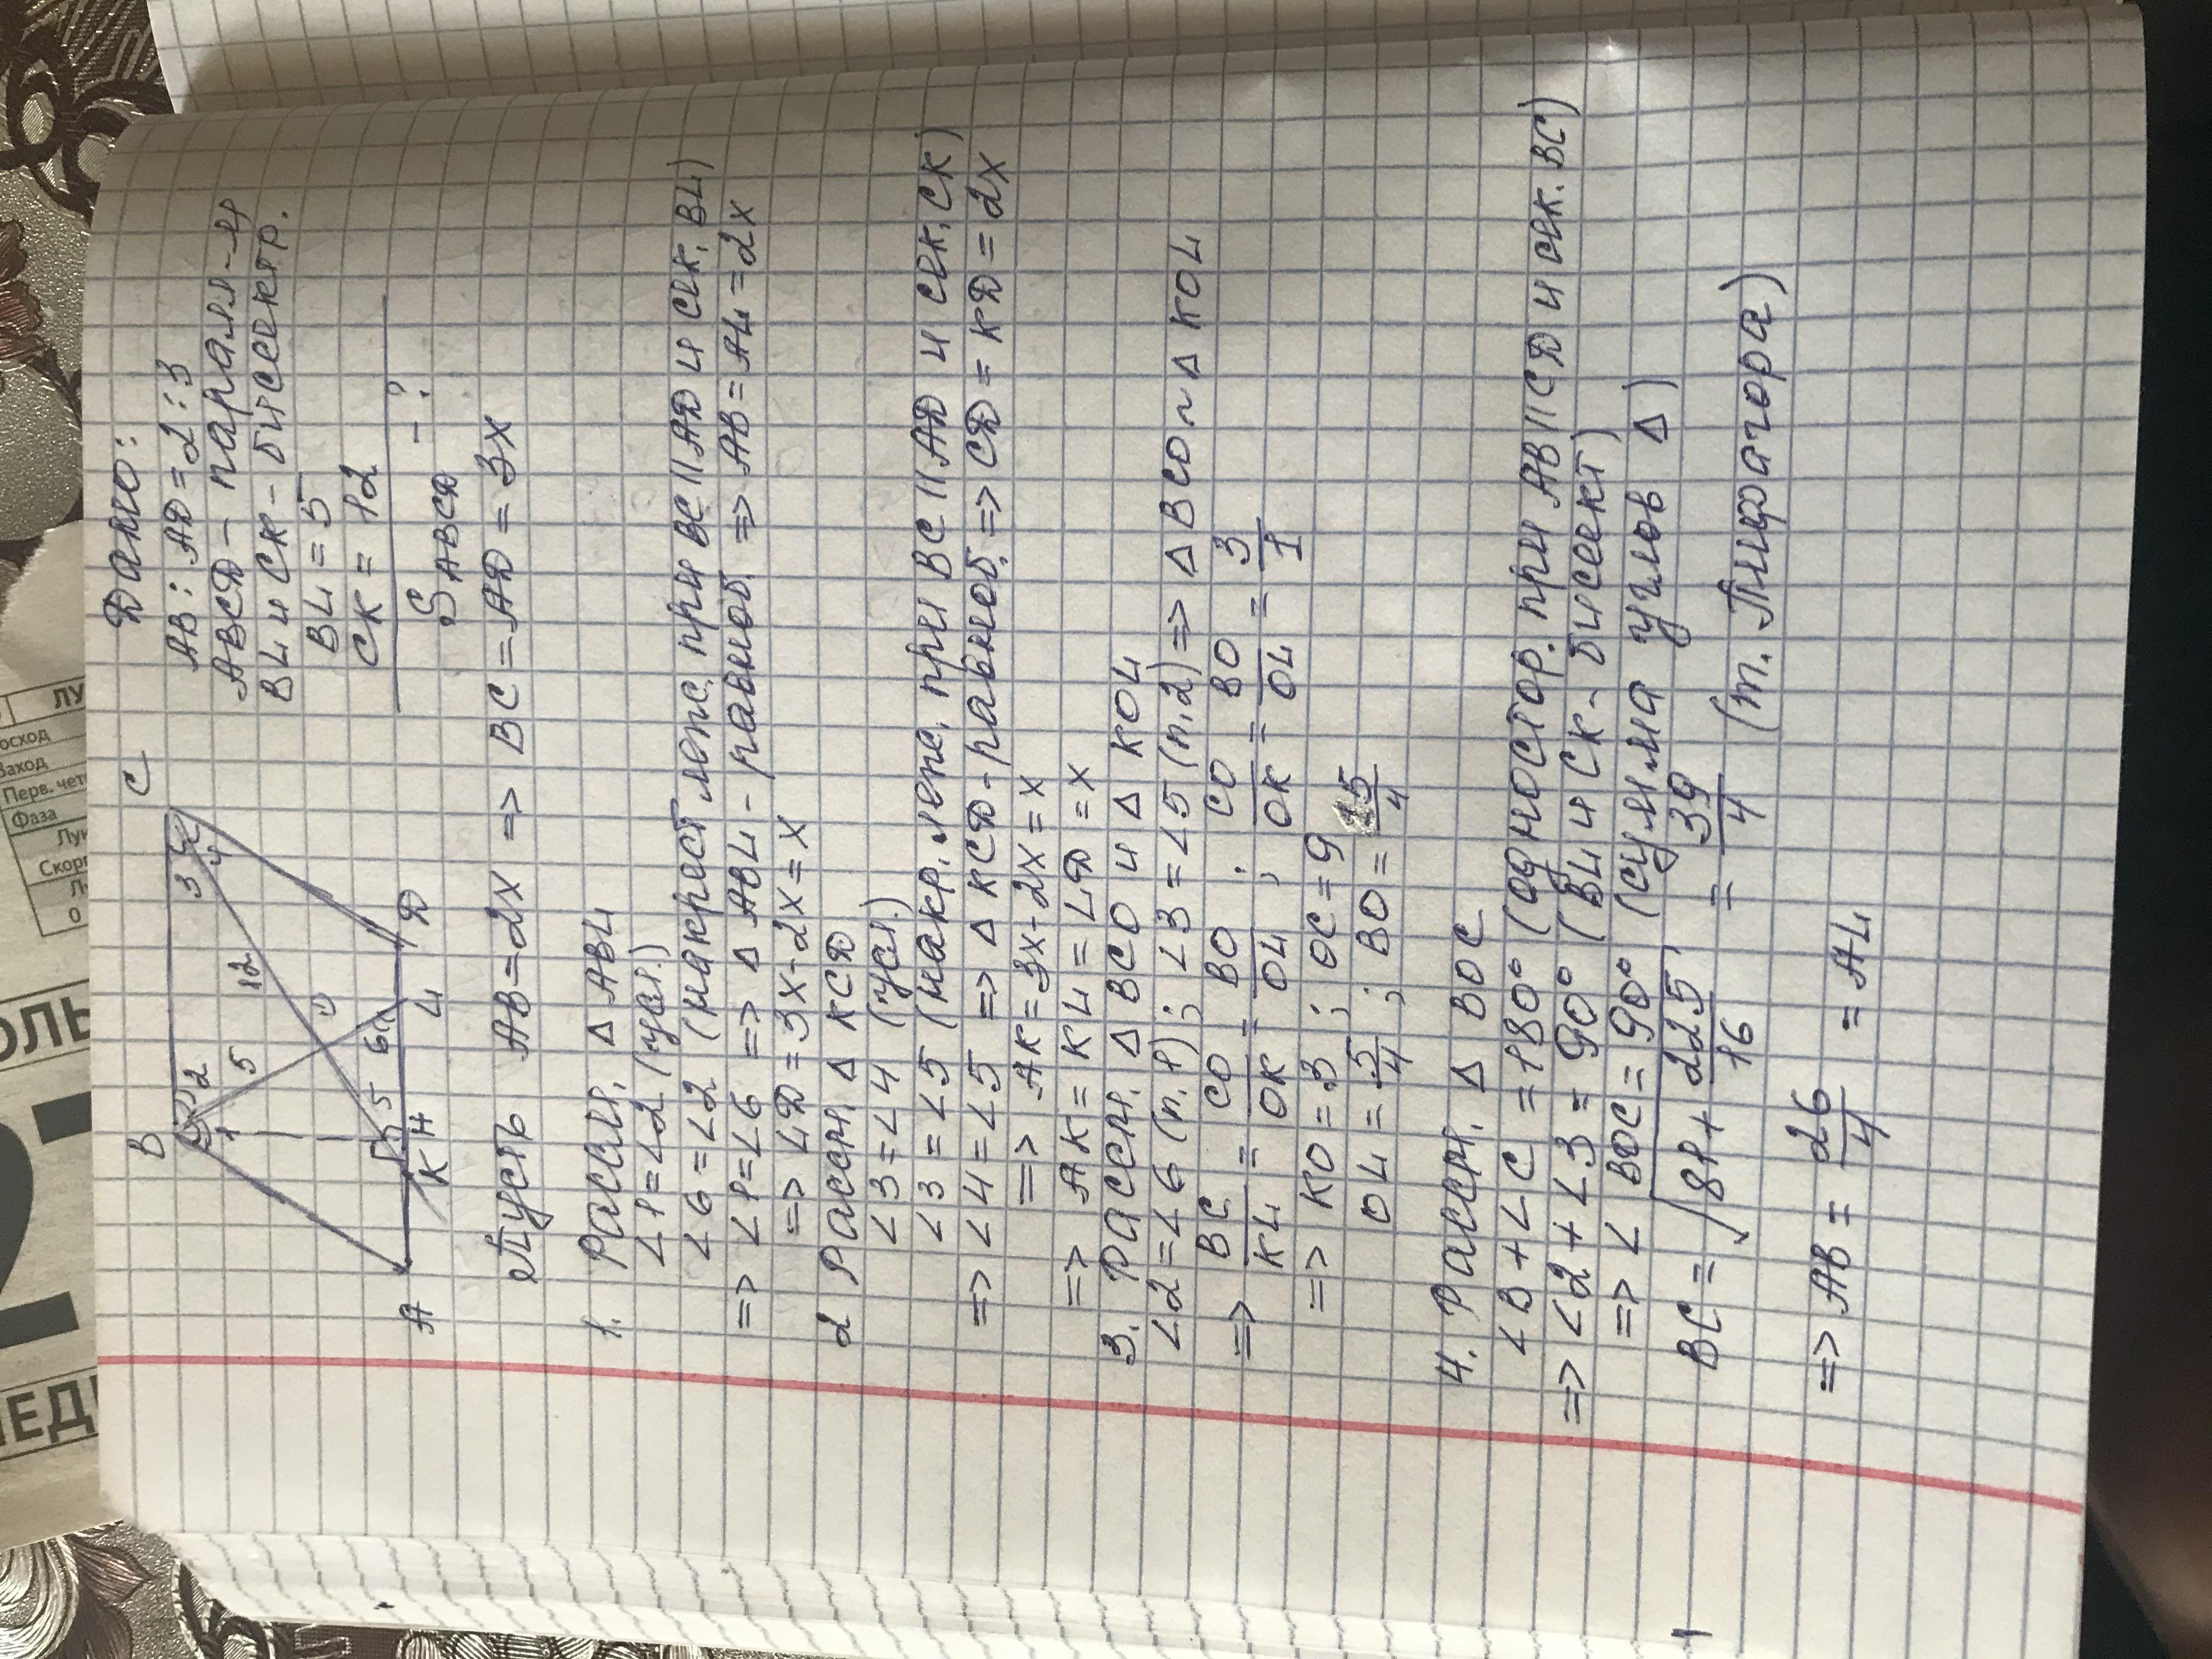 Дано:
AB : AD = 2 : 3
ABCD - паралл-м
BL и CK - бисектр.
BL = 5
CK = 12
S ABCD - ?
B
C
A
K
H
L
D
1
2
3
4
5
6
5
12
Пусть AB = 2x => BC = AD = 3x
1. Рассм. Δ ABL
∠1 = ∠2 (усл.)
∠6 = ∠2 (накрест леж. при BC || AD и сек. BL)
=> ∠1 = ∠6 => Δ ABL - равноб. => AB = AL = 2x
=> LD = 3x - 2x = x
2 Рассм. Δ KCD
∠3 = ∠4 (усл.)
∠3 = ∠5 (накр. леж. при BC || AD и сек. CK)
=> ∠4 = ∠5 => Δ KCD - равноб. => CD = KD = 2x
=> AK = 3x - 2x = x
=> AK = KL = LD = x
3. Рассм. Δ BCO и Δ KOL
∠2 = ∠6 (п. 1) ; ∠3 = ∠5 (п. 2) => Δ BCO ~ Δ KOL
=> BC/KL = CO/OK = BO/OL ; CO/OK = BO/OL = 3/1
=> KO = 3 ; OC = 9
OL = 5/4 ; BO = 15/4
4. Рассм. Δ BOC
∠B + ∠C = 180° (одностор. при AB || CD и сек. BC)
=> ∠2 + ∠3 = 90° (BL и CK - бисект)
=> ∠ BOC = 90° (сумма углов Δ)
BC = √81 + 225/16 = 39/4 (т. Пифагора)
=> AB = 26/4 = AL
ОЛЬ
ЛУ
осход
Заход
Перв. чет
Фаза
Лу
Скор